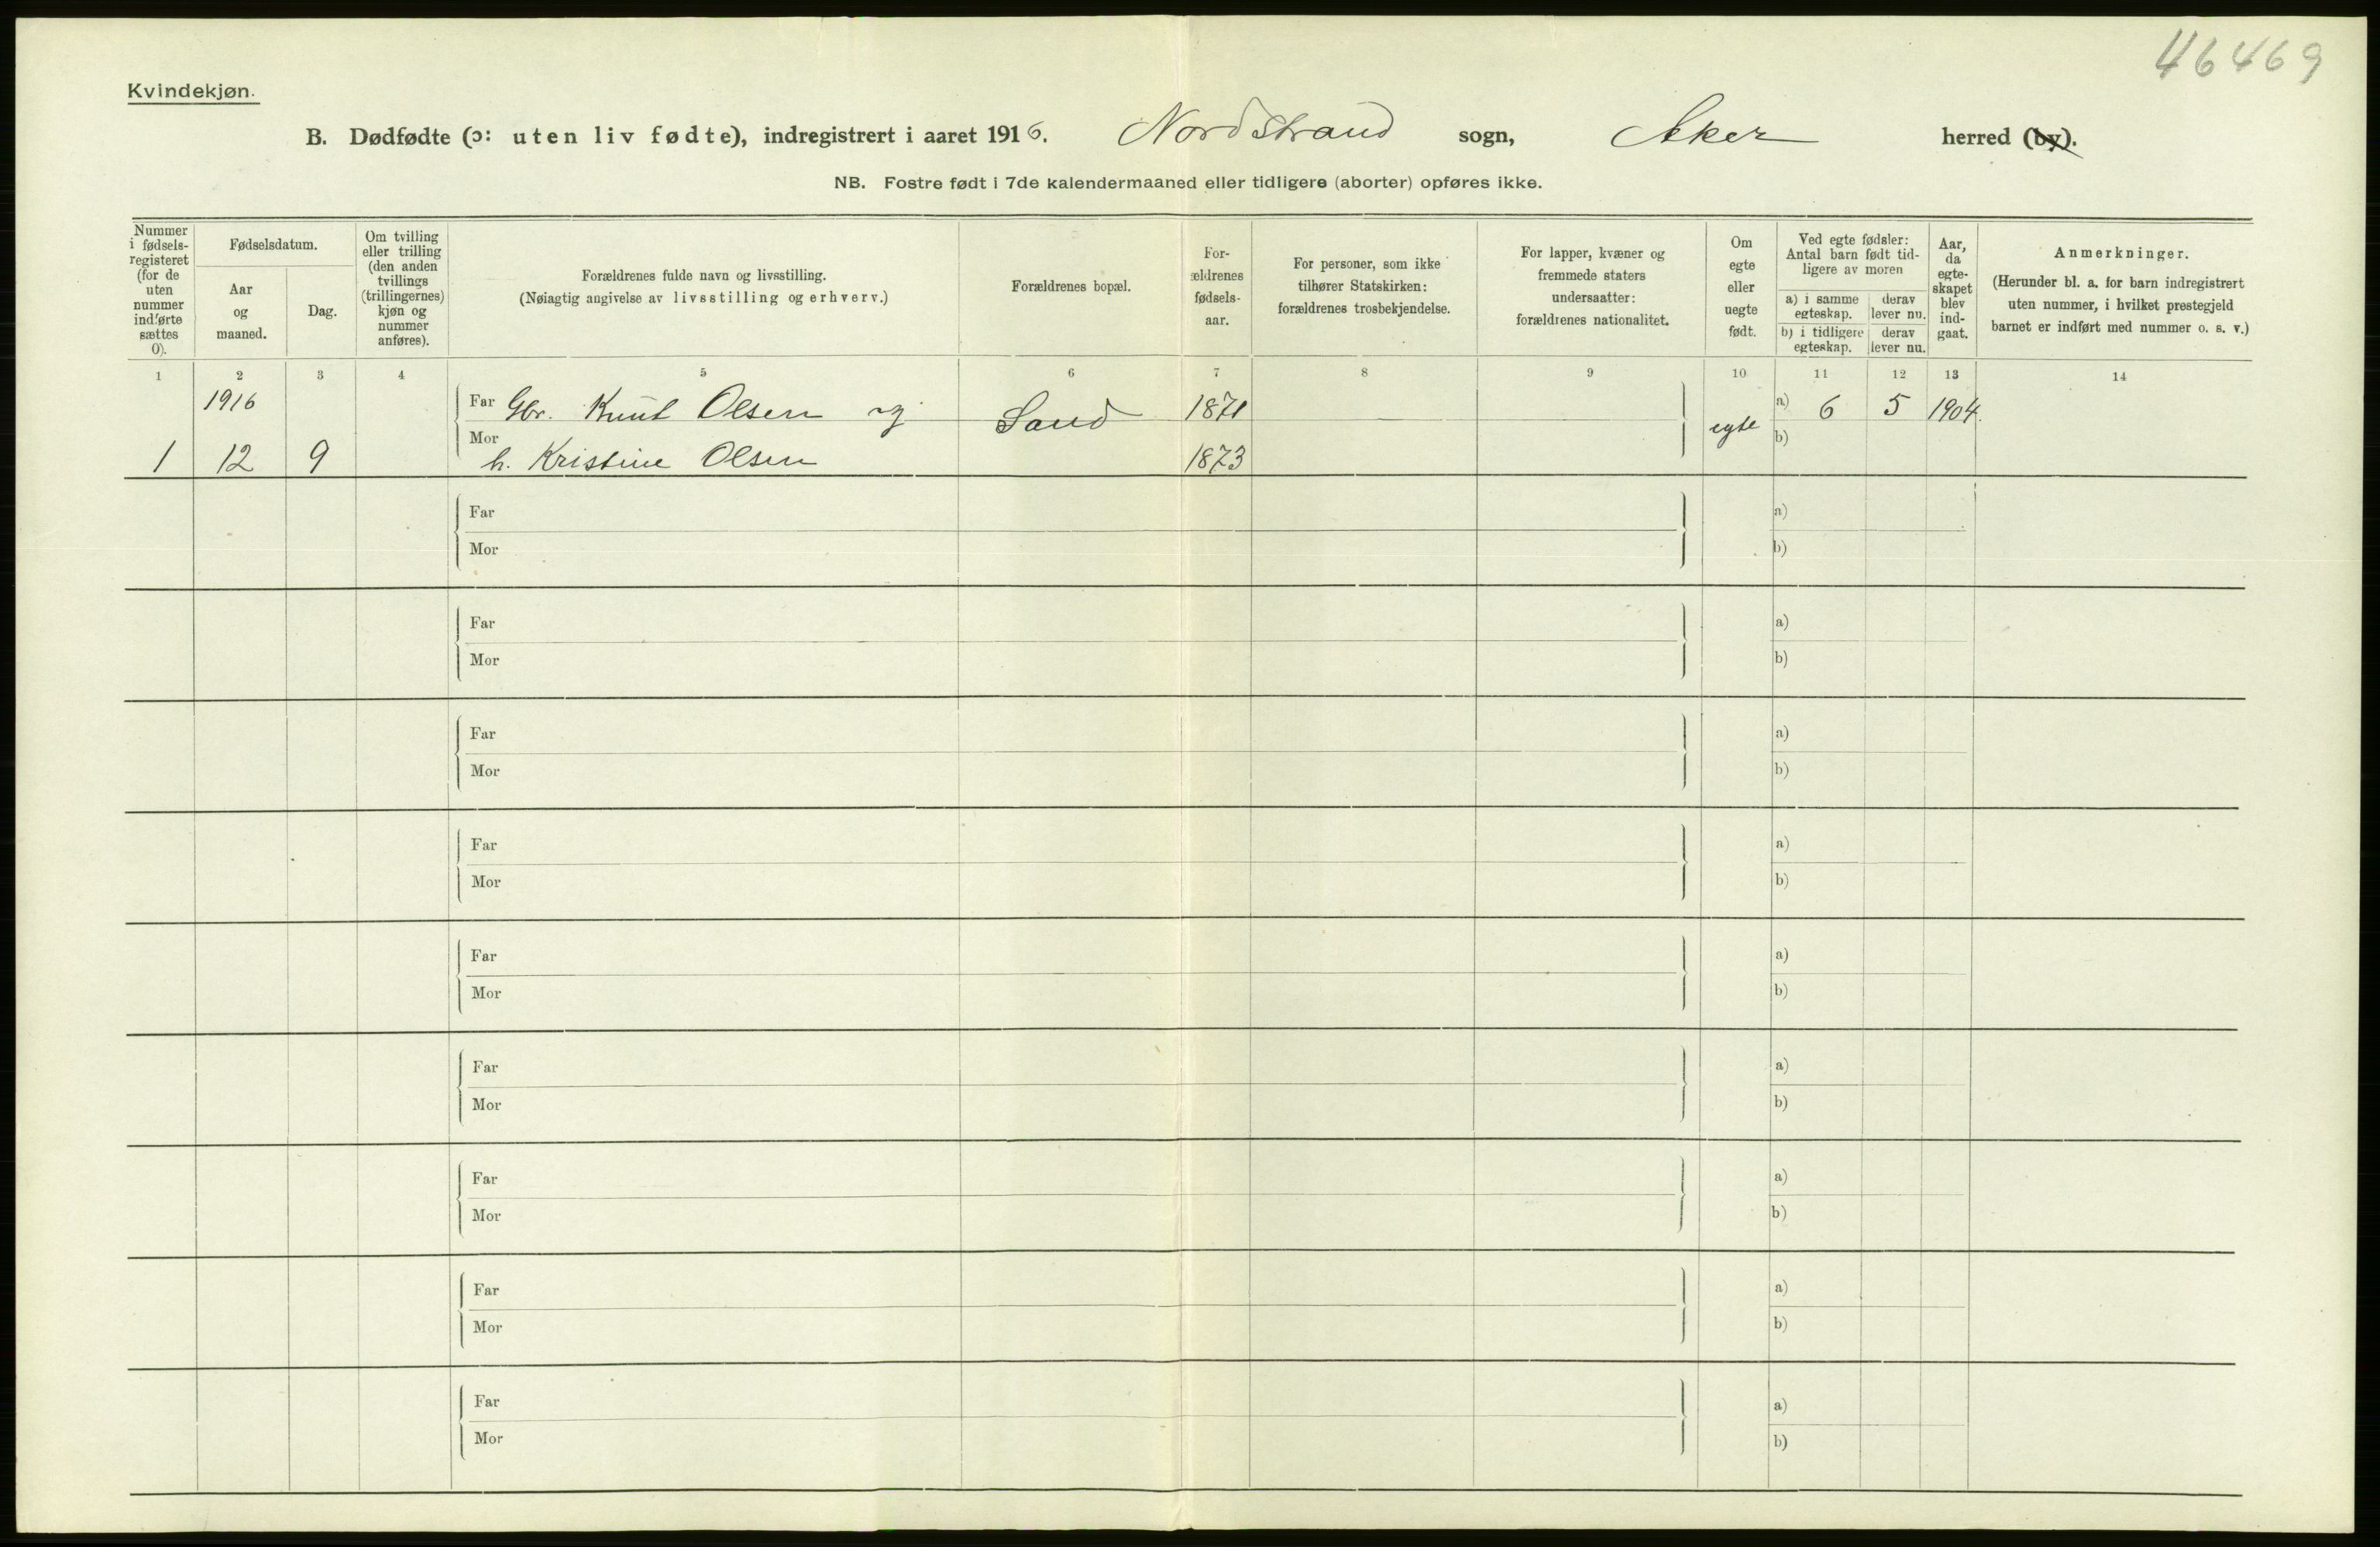 46469
Kvindekjøn.
B. Dødfødte (ɔ: uten liv fødte), indregistrert i aaret 1916. Nordstrand sogn, Aker herred (by).
NB. Fostre født i 7de kalendermaaned eller tidligere (aborter) opføres ikke.
Nummer i fødsels-registeret (for de uten nummer indførte sættes 0).
Fødselsdatum.
Aar og maaned.
Dag.
Om tvilling eller trilling (den anden tvillings (trillingernes) kjøn og nummer anføres).
Forældrenes fulde navn og livsstilling.
(Nøiagtig angivelse av livsstilling og erhverv.)
Forældrenes bopæl.
For-ældrenes fødsels-aar.
For personer, som ikke tilhører Statskirken: forældrenes trosbekjendelse.
For lapper, kvæner og fremmede staters undersaatter: forældrenes nationalitet.
Om egte eller uegte født.
Ved egte fødsler: Antal barn født tid-ligere av moren
a) i samme egteskap.
derav lever nu.
b) i tidligere egteskap.
derav lever nu.
Aar, da egte-skapet blev ind-gaat.
Anmerkninger.
(Herunder bl. a. for barn indregistrert uten nummer, i hvilket prestegjeld barnet er indført med nummer o. s. v.)
1 2 3 4 5 6 7 8 9 10 11 12 13 14
1916 Far Gbr. Knut Olsen og Sand 1871 egte a) 6 5 1904.
1 12 9 Mor h. Kristine Olsen 1873 b)
Far a)
Mor b)
Far a)
Mor b)
Far a)
Mor b)
Far a)
Mor b)
Far a)
Mor b)
Far a)
Mor b)
Far a)
Mor b)
Far a)
Mor b)
Far a)
Mor b)